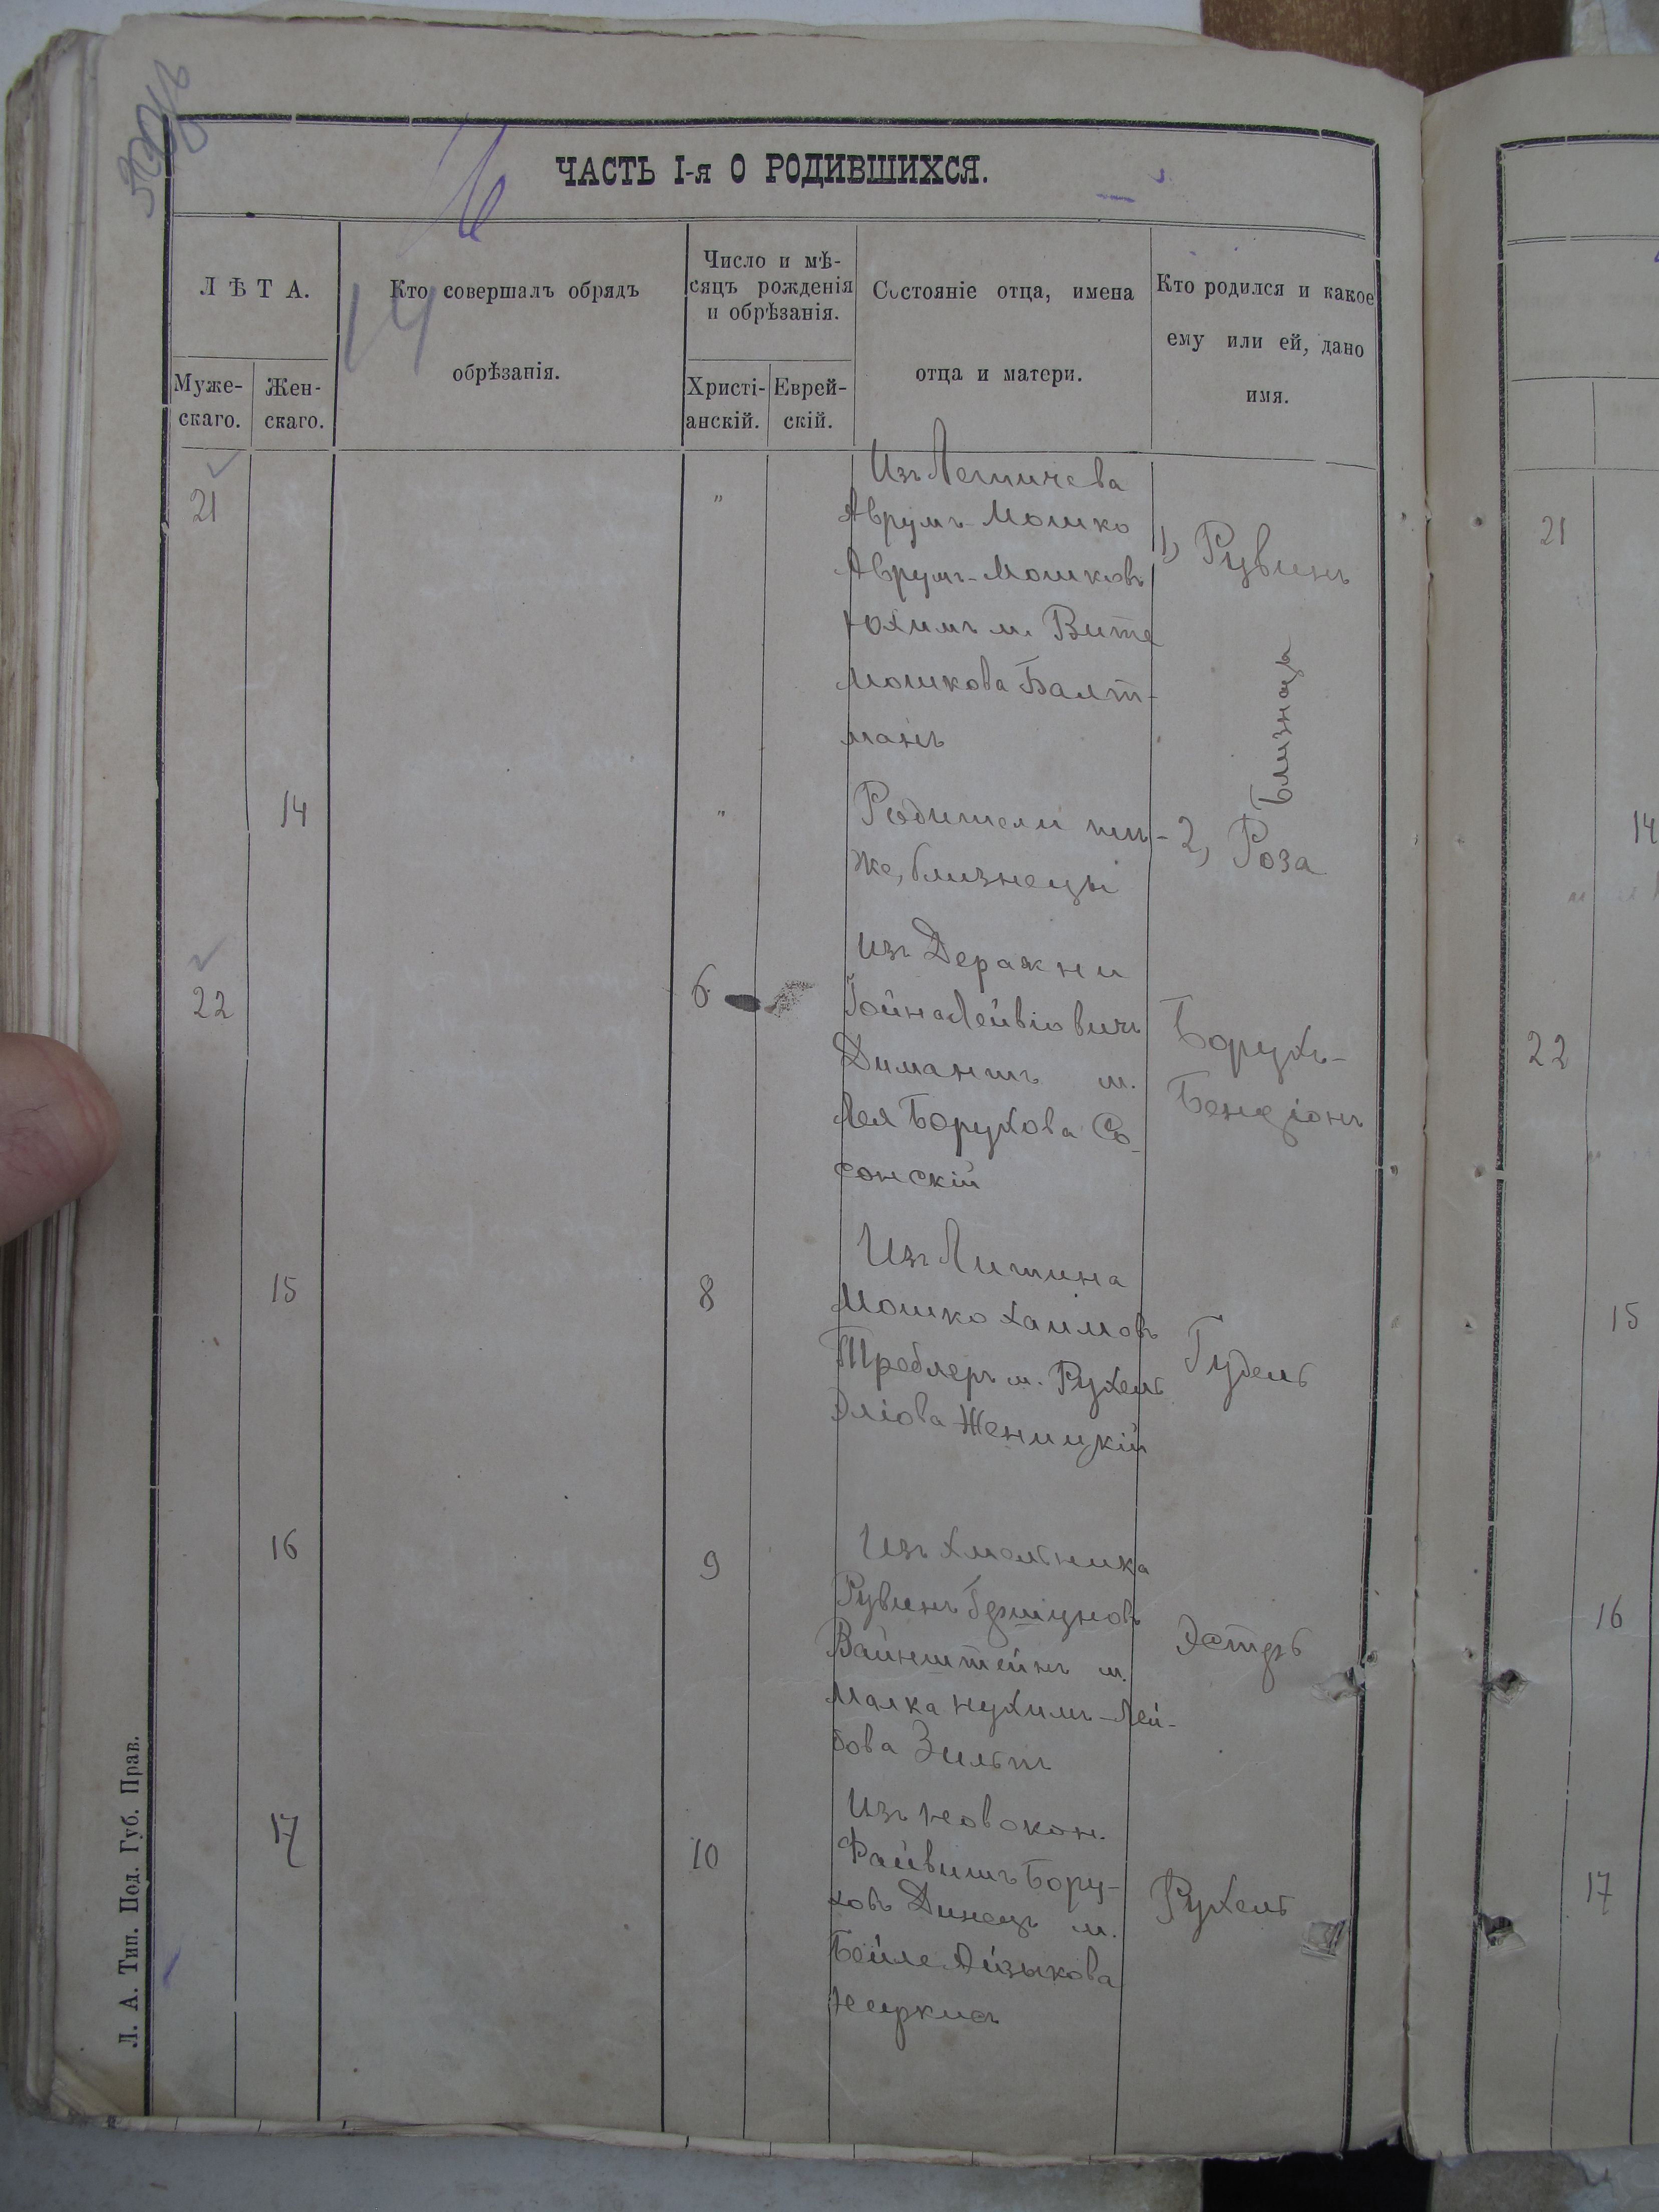 ЧАСТЬ I-я О РОДИВШИХСЯ.
ЛѢТА.
Муже-
скаго.
Жен-
скаго.
Кто совершалъ обрядъ
обрѣзанія.
Число и мѣ-
сяцъ рожденія
и обрѣзанія.
Христі-
анскій.
Еврей-
скій.
Состояніе отца, имена
отца и матери.
Кто родился и какое
ему или ей, дано
имя.
14
21
"
Изъ Летичева
Аврумъ-Мошко
Аврумъ-Мошковъ
Юхимъ м. Вита
Мошкова Балт-
манъ
1) Рувинъ
Близнецы
14
"
Родители тѣ-
же, близнецы
2) Роза
22
6
Изъ Деражни
Гойна Лейвіовичъ
Димантъ м.
Лея Борухова Со-
сонскій
Борухъ-
Бенціонъ
15
8
Изъ Литина
Мошко Хаимовъ
Треблеръ м. Рухель
Эліова Женицкій
Гудель
16
9
Изъ Хмельника
Рувинъ Гершуновъ
Вайнштейнъ м.
Малка Нухимъ-Лей-
бова Зильт
Эстеръ
17
10
Изъ Новокон.
Файвишъ Бору-
ховъ Динецъ м.
Бейле Айзыкова
Рухель
Л. А. Тип. Под. Губ. Прав.
21
14
22
15
16
17